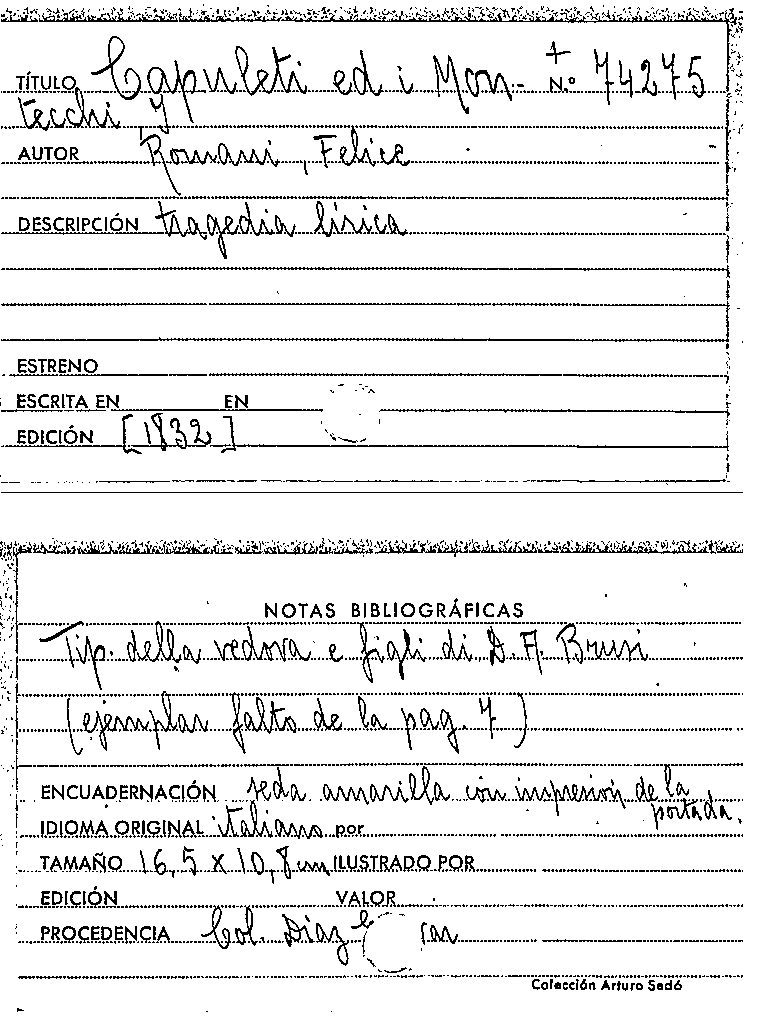 TÍTULO Capuleti ed i Mon- + N.º 74275
tecchi, I
AUTOR Romani, Felice
DESCRIPCIÓN tragedia lírica
ESTRENO
ESCRITA EN EN
EDICIÓN [1832]
NOTAS BIBLIOGRÁFICAS
Tip. della vedova e figli di D. A. Brusi
(ejemplar falto de la pag. 7)
ENCUADERNACIÓN seda amarilla con impresión de la
portada.
IDIOMA ORIGINAL italiano por
TAMAÑO 16,5 x 10,8 cm ILUSTRADO POR
EDICIÓN VALOR
PROCEDENCIA Col. Díaz
Colección Arturo Sedó